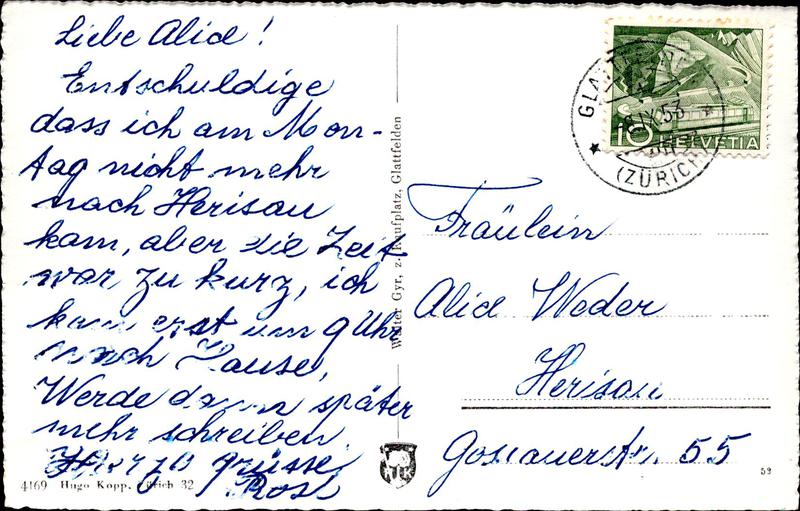 Liebe Alice!
Entschuldige
dass ich am Mon-
tag nicht mehr
nach Herisau
kam, aber die Zeit
war zu kurz, ich
kam erst um 9 Uhr
nach Hause,
Werde dann später
mehr schreiben.
Herzl grüsse
Rosi
4169 Hugo Kopp, Zürich 32
Walter Gyr, z. Kaufplatz, Glattfelden
HELVETIA
10
IX.53
(ZÜRICH)
Fräulein
Alice Weder
Herisau
Gossauerstr. 55
52